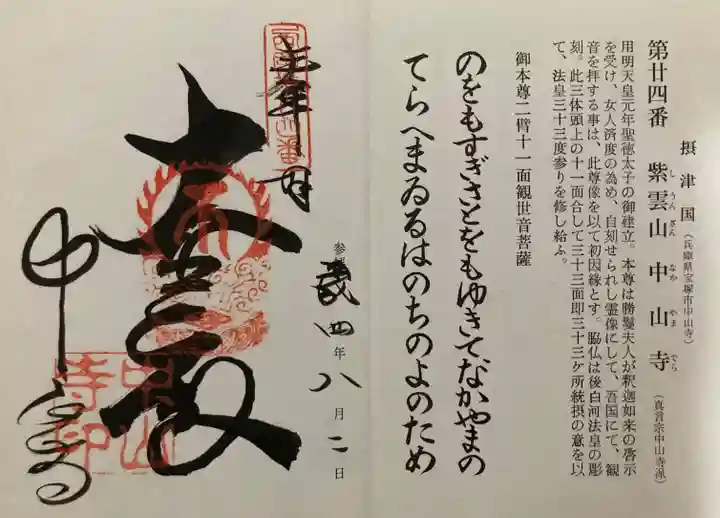 摂津国（兵庫県宝塚市中山寺）
第廿四番　紫雲山中山寺（真言宗中山寺派）
しうんざんなかやまでら
用明天皇元年聖徳太子の御建立。本尊は勝鬘夫人が釈迦如来の啓示
を受け、女人済度の為め、自刻せられし霊像にして、吾国にて、観
音を拝する事は、此尊像を以て初因縁とす。脇仏は後白河法皇の彫
刻。此三体頭上の十一面合して三十三面即三十三ケ所統摂の意を以
て、法皇三十三度参りを修し給ふ。
御本尊二臂十一面観世音菩薩
のをもすぎさとをもゆきてなかやまの
てらへまゐるはのちのよのため
年八月二日
大悲殿
中山寺
中山
寺印